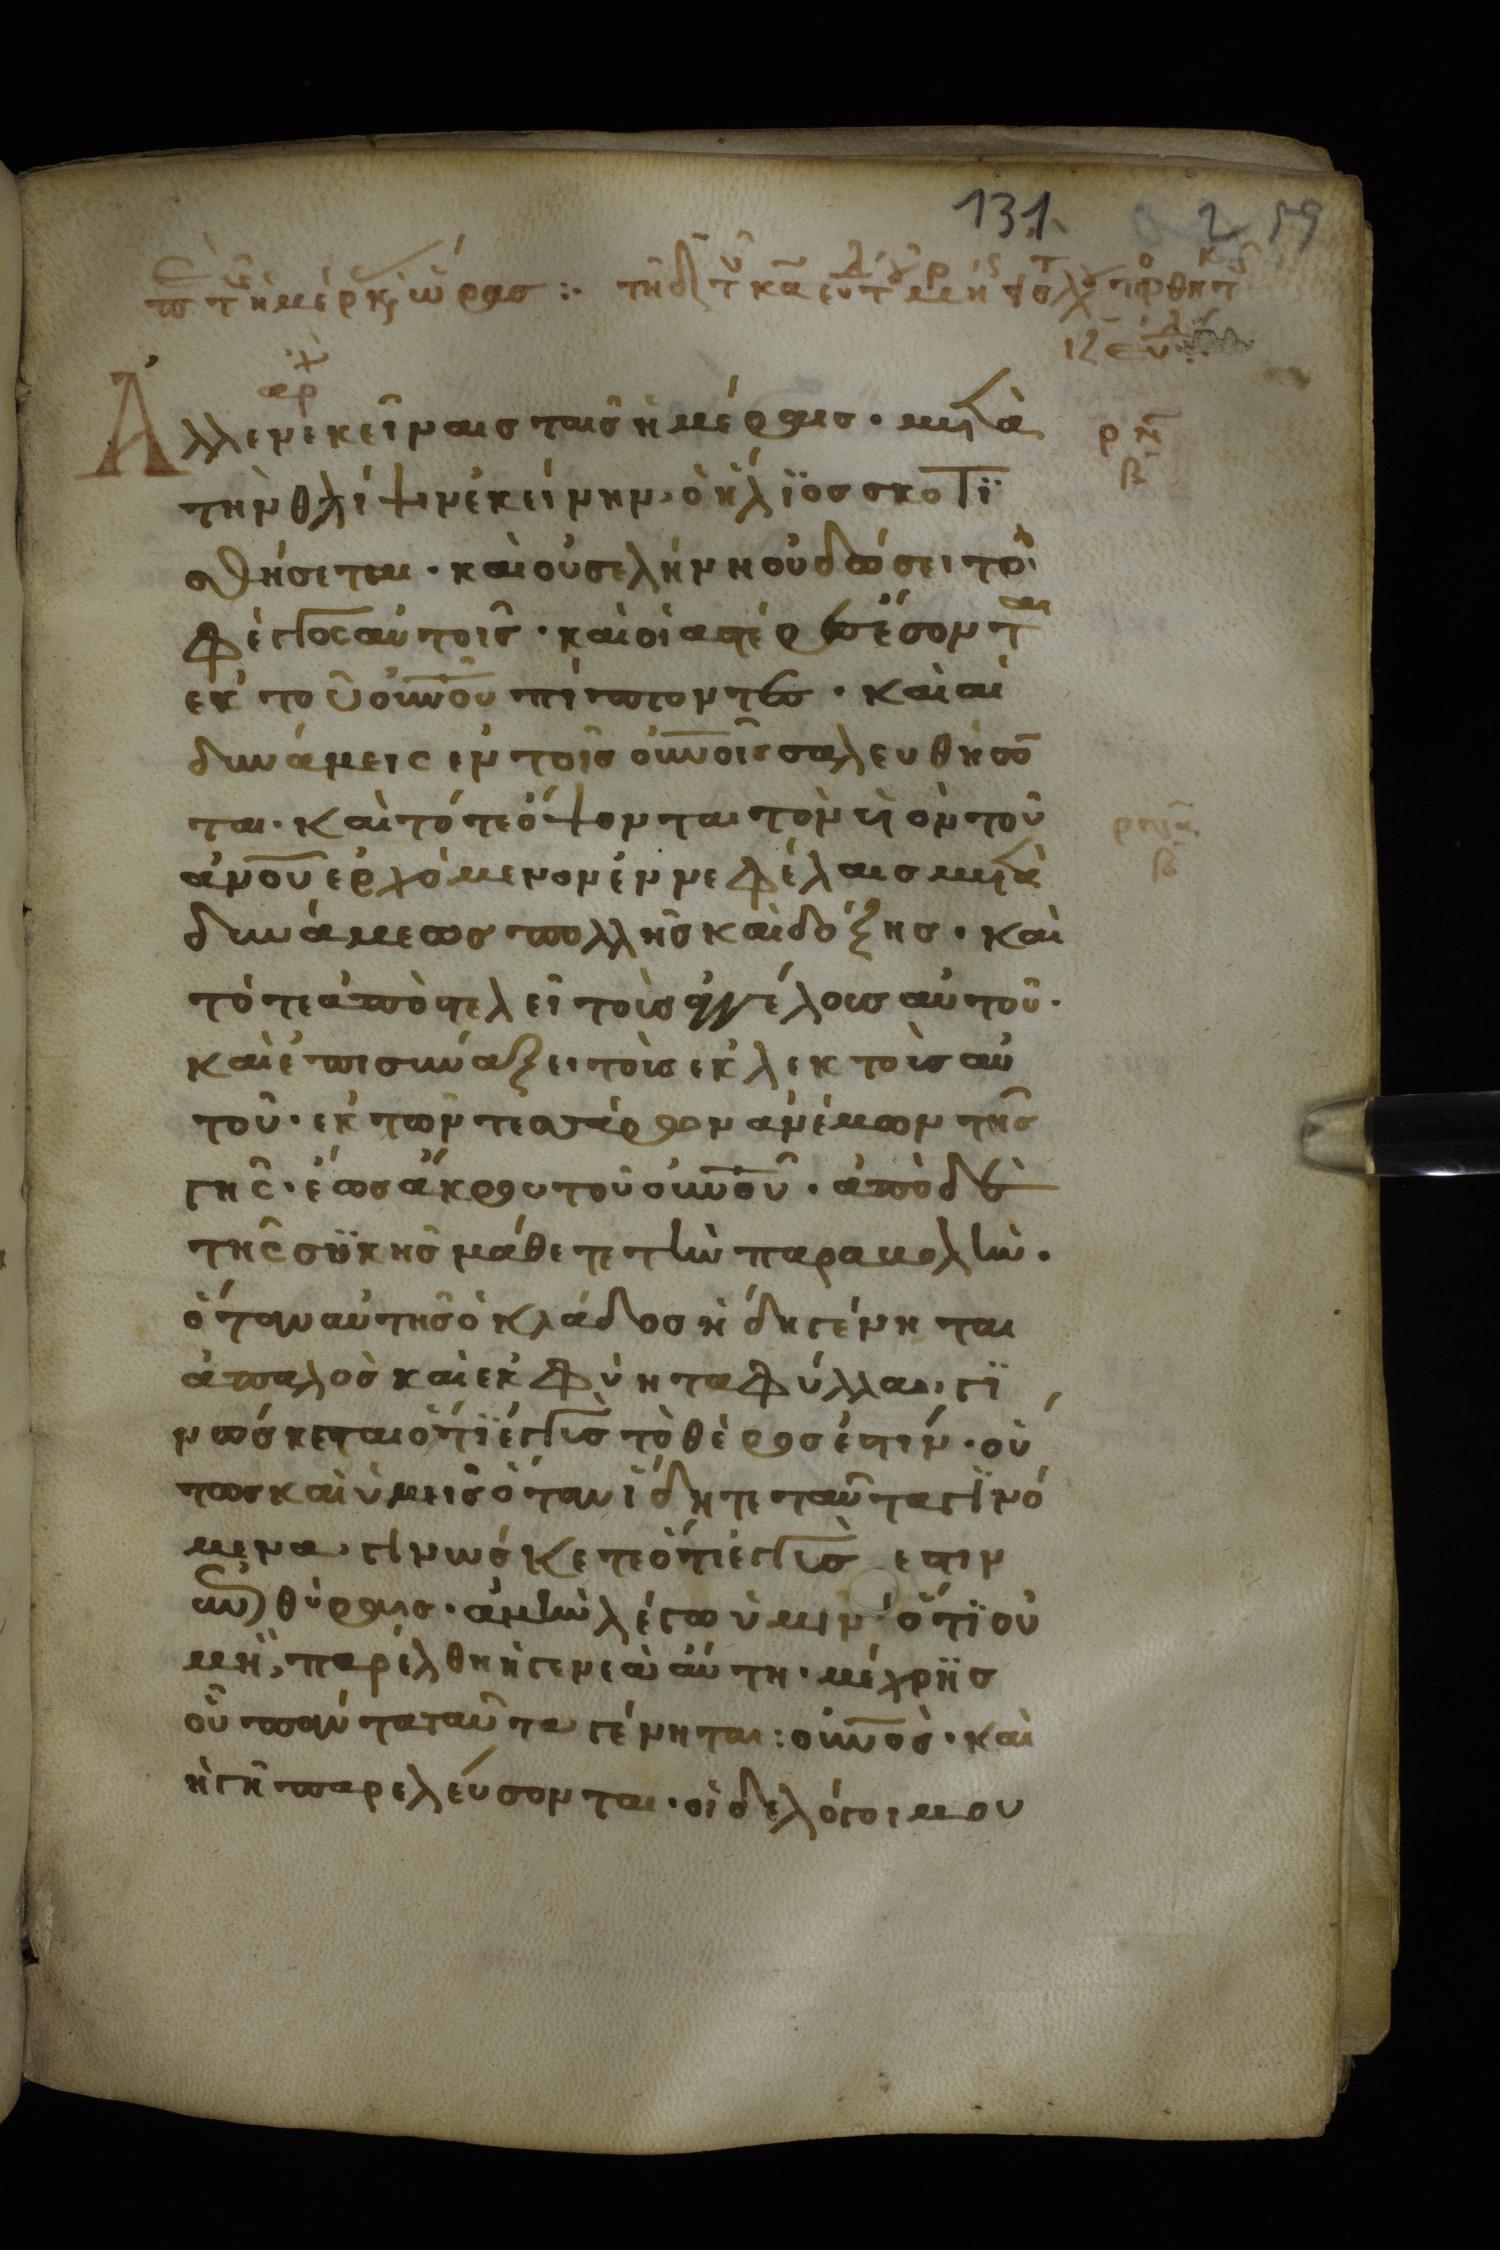 131 2 59
ἀρχ
Ἀλλ ἐν ἐκείναις ταῖς ἡμέραις · μετὰ
τὴν θλίψιν ἐκείνην, ὁ ἥλϊος σκοτϊ
σθήσεται · καὶ οὐ σελήνη οὐ δώσει τὸ
φέγγος αὐτοῖς · καὶ οἱ ἀστέρες ἔσονται
ἐκ τοῦ οὐνοῦ πίπτοντες · καὶ αἱ
δυνάμεις ἐν τοῖς οὐνοῖς σαλευθήσον
ται · καὶ τότε ὄψονται τὸν ὑὸν τοῦ
ἀνοῦ ἐρχόμενον ἐν νεφέλαις μετὰ
δυνάμεως πολλῆς καὶ δόξης · καὶ
τότε ἀποστελεῖ τοὺς ἀγγέλους αὐτοῦ ·
καὶ ἐπισυνάξει τοὺς ἐκλεκτοὺς αὐ
τοῦ · ἐκ τῶν τεσσάρων ἀνέμων τῆς
γῆς · ἕως ἄκρου τοῦ οὐνοῦ · ἀπὸ δὲ
τῆς συκῆς μάθετε τὴν παραβολήν ·
ὅταν αὐτῆς ὁ κλάδος ἤδη γένηται
ἁπαλὸς καὶ ἐκφύη τὰ φύλλα, γϊ
νώσκεται ὅτϊ ἐγγὺς τὸ θέρος ἐστίν · οὕ
τως καὶ ὑμεῖς ὅταν ἴδητε ταῦτα γϊνό
μενα, γινώσκετε ὅτι ἐγγὺς ἐστιν
ἐπὶ θύραις · ἀμὴν λέγω ὑμῖν ὅτϊ οὐ
μὴ παρέλθη ἡ γενεὰ αὕτη · μέχρϊς
οὗ πάντα ταῦτα γένηται : οὐνὸς · καὶ
ἡ γῆ παρελεύσονται · οἱ δὲ λόγοι μου